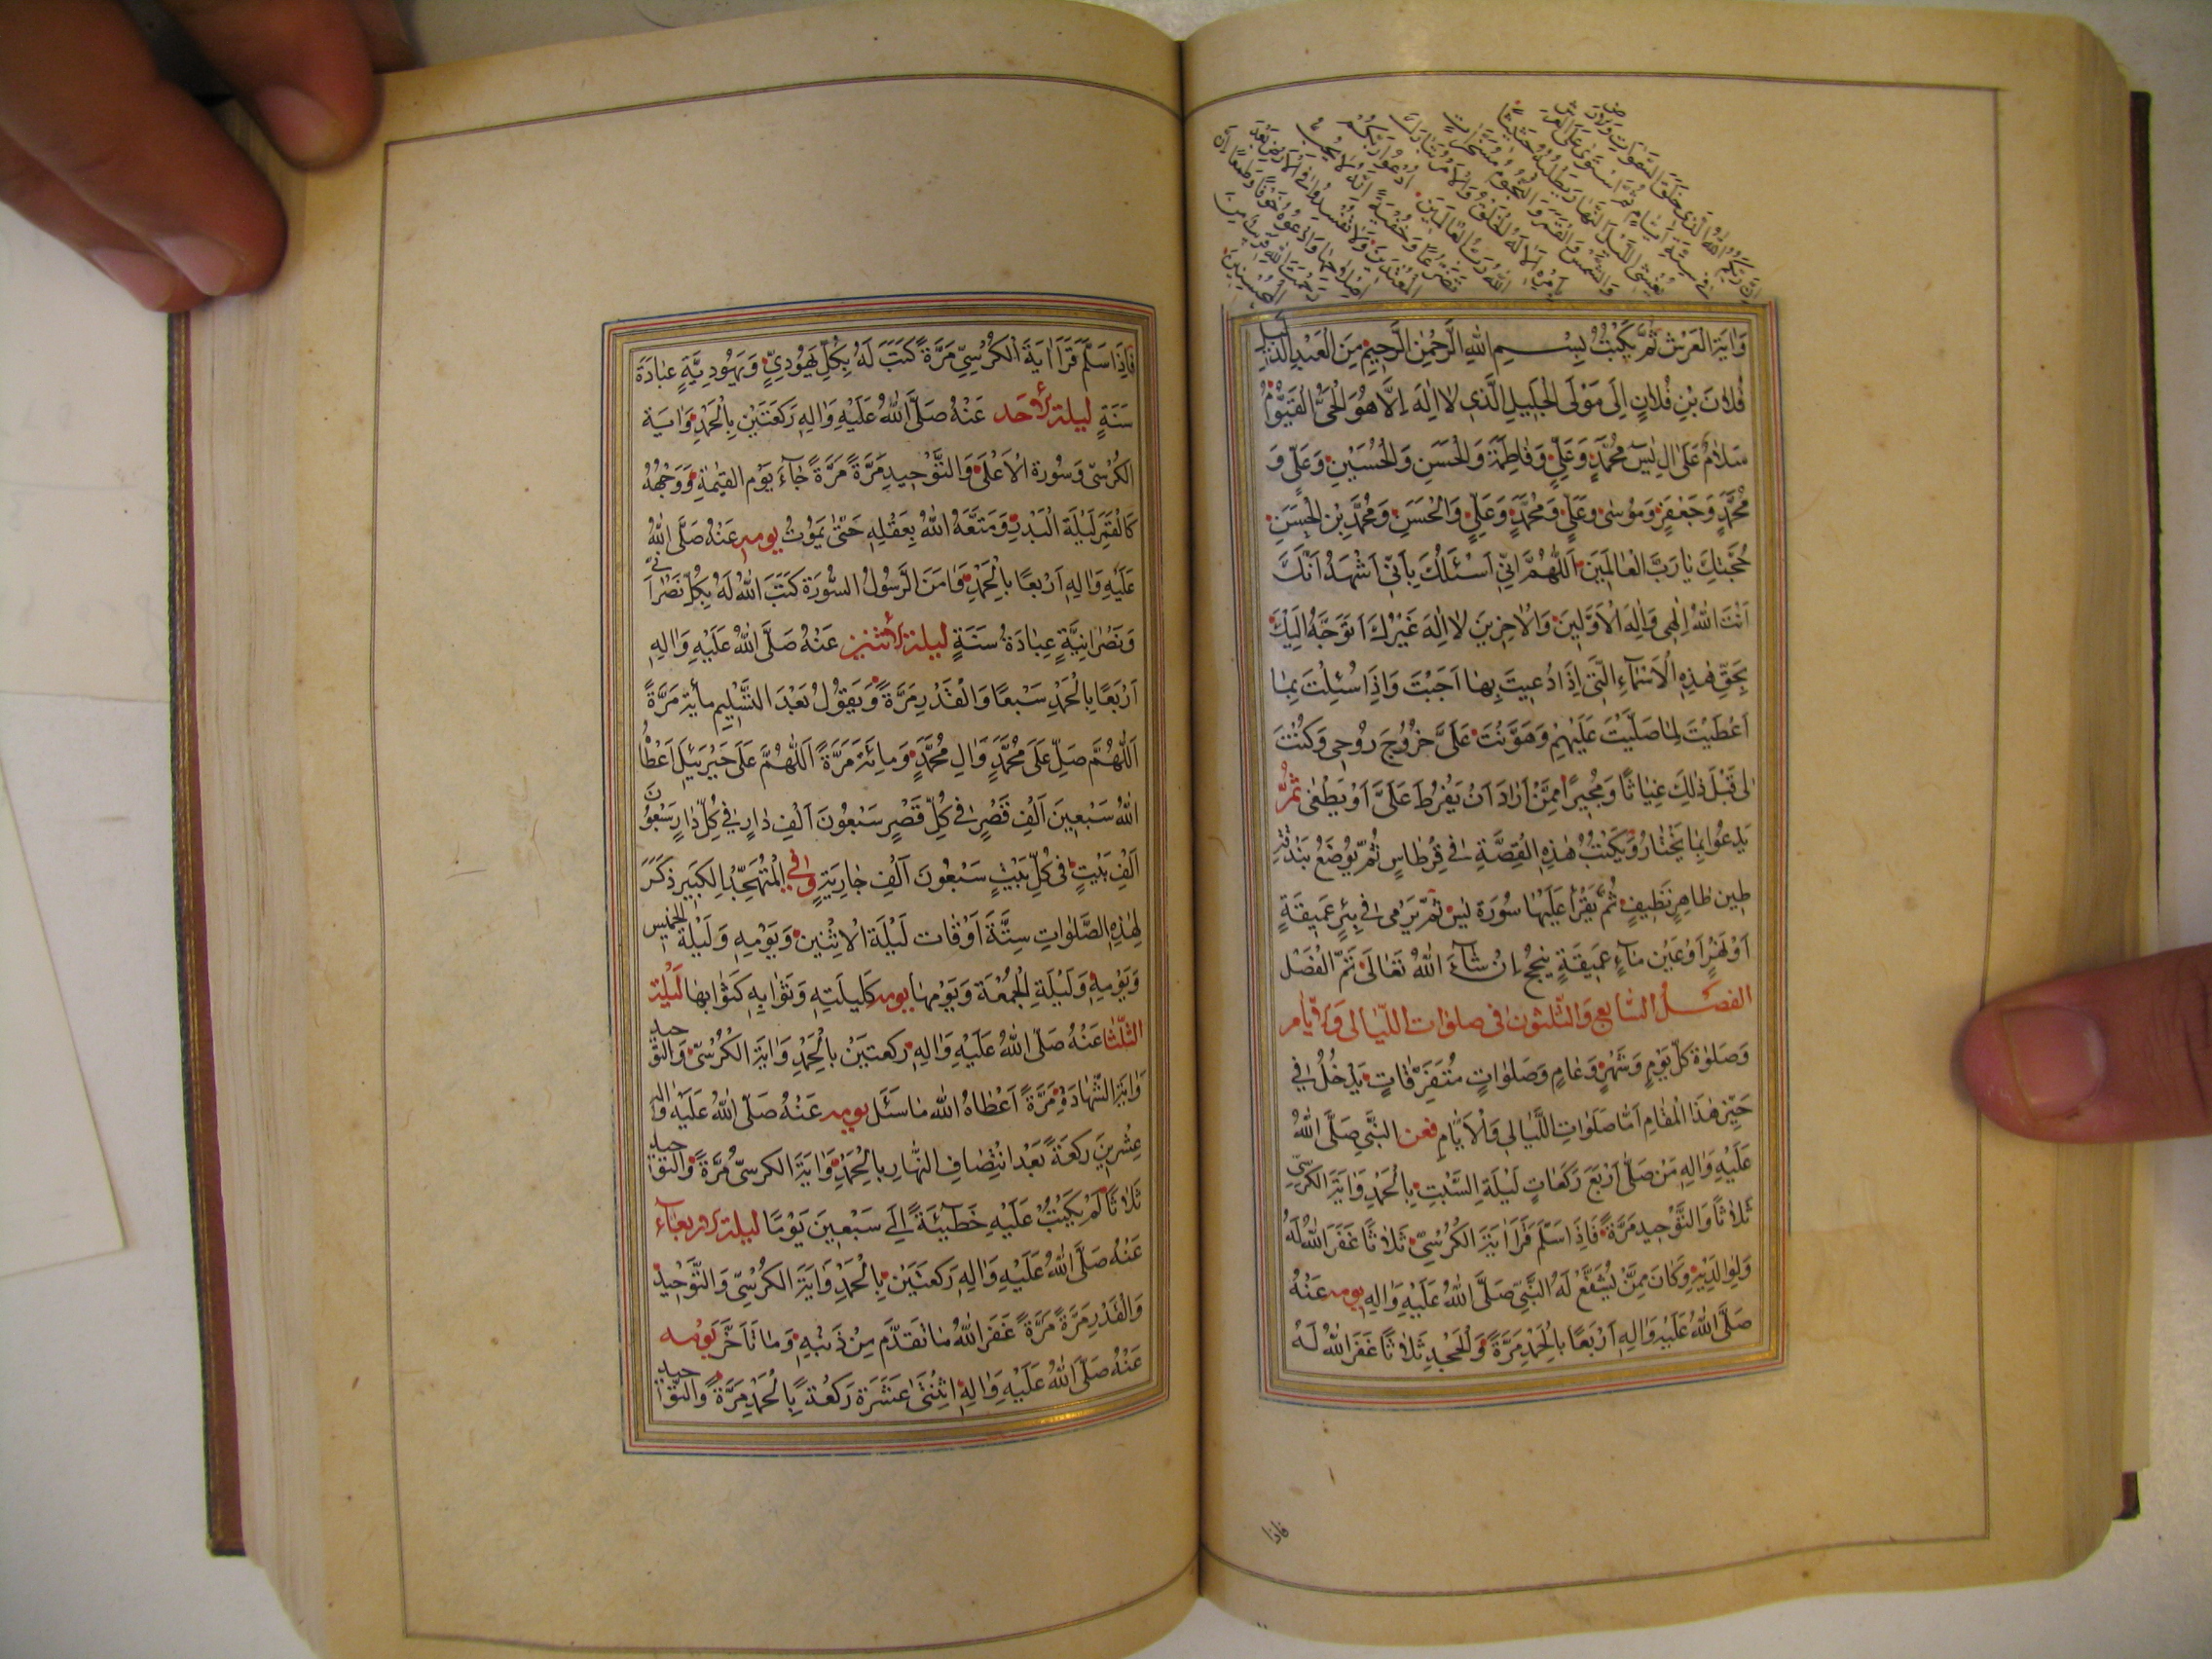 اِنَّ رَبَّكُمُ اللهُ الَّذى خَلَقَ السَّمٰوَاتِ وَالْاَرْضَ
فى سِتَّةِ اَيَّامٍ ثُمَّ اسْتَوٰى عَلَى الْعَرْشِ
يُغْشِى اللَّيْلَ النَّهَارَ يَطْلُبُهُ حَثيثًا
وَالشَّمْسَ وَالْقَمَرَ وَالنُّجُومَ مُسَخَّرَاتٍ
بِاَمْرِهِ اَلَا لَهُ الْخَلْقُ وَالْاَمْرُ تَبَارَكَ
اللهُ رَبُّ الْعَالَمينَ اُدْعُوا رَبَّكُمْ
تَضَرُّعًا وَخُفْيَةً اِنَّهُ لَا يُحِبُّ
الْمُعْتَدينَ وَلَا تُفْسِدُوا فِى الْاَرْضِ بَعْدَ
اِصْلَاحِهَا وَادْعُوهُ خَوْفًا وَطَمَعًا اِنَّ
رَحْمَتَ اللهِ قَريبٌ مِنَ
الْمُحْسِنينَ
وَاٰيَةَ الْعَرْشِ ثُمَّ يَكْتُبُ بِسْمِ اللهِ الرَّحْمٰنِ الرَّحيمِ مِنَ الْعَبْدِ الذَّليلِ
فُلَانَ بْنِ فُلَانٍ اِلٰى مَوْلَى الْجَليلِ الَّذى لَا اِلٰهَ اِلَّا هُوَ الْحَىُّ الْقَيُّومُ
سَلَامٌ عَلٰى اٰلِ يٰسۤ مُحَمَّدٍ وَعَلِىٍّ وَفَاطِمَةَ وَالْحَسَنِ وَالْحُسَيْنِ وَعَلِىٍّ وَ
مُحَمَّدٍ وَجَعْفَرٍ وَمُوسٰى وَعَلِىٍّ وَمُحَمَّدٍ وَعَلِىٍّ وَالْحَسَنِ وَمُحَمَّدِ بْنِ الْحَسَنِ
حُجَّتِكَ يَا رَبَّ الْعَالَمينَ اَللّٰهُمَّ اِنّى اَسْئَلُكَ بِاَنّى اَشْهَدُ اَنَّكَ
اَنْتَ اللهُ اِلٰهى وَاِلٰهُ الْاَوَّلينَ وَالْاٰخِرينَ لَا اِلٰهَ غَيْرُكَ اَتَوَجَّهُ اِلَيْكَ
بِحَقِّ هٰذِهِ الْاَسْمَاءِ الَّتى اِذَا دُعيتَ بِهَا اَجَبْتَ وَاِذَا سُئِلْتَ بِهَا
اَعْطَيْتَ لَمَّا صَلَّيْتَ عَلَيْهِمْ وَهَوَّنْتَ عَلَىَّ خُرُوجَ رُوحى وَكُنْتَ
لى قَبْلَ ذٰلِكَ غِيَاثًا وَمُجيرًا مِمَّنْ اَرَادَ اَنْ يَفْرُطَ عَلَىَّ اَوْ يَطْغٰى ثُمَّ
يَدْعُوا بِمَا يَخْتَارُ وَيَكْتُبُ هٰذِهِ الْقِصَّةَ فى قِرْطَاسٍ ثُمَّ يُوضَعُ بُنْدُقَةِ
طينٍ طَاهِرٍ نَظيفٍ ثُمَّ يَقْرَأُ عَلَيْهَا سُورَةَ يٰس ثُمَّ يَرْمى فى بِئْرٍ عَميقَةٍ
اَوْ نَهْرٍ اَوْ عَيْنِ مَاءٍ عَميقَةٍ يُنْجِحُ اِنْ شَاءَ اللهُ تَعَالٰى تَمَّ الْفَصْلُ
الفصل السَّابع وَالثَّلثون فى صلوات اللّيالى وَالايام
وَصَلٰوةِ كُلِّ يَوْمٍ وَشَهْرٍ وَعَامٍ وَصَلَوَاتٍ مُتَفَرِّقَاتٍ يَدْخُلُ فى
حَيِّزِ هٰذَا الْمَقَامِ اَمَّا صَلَوَاتِ اللَّيَالى وَالْاَيَّامِ فعن النَّبِىِّ صَلَّى اللهُ
عَلَيْهِ وَاٰلِهِ مَنْ صَلّٰى اَرْبَعَ رَكَعَاتٍ لَيْلَةَ السَّبْتِ بِالْحَمْدِ وَاٰيَةَ الكُرْسِىِّ
ثَلَاثًا وَالتَّوْحيدِ مَرَّةً فَاِذَا سَلَّمَ قَرَأَ اٰيَةَ الكُرْسِىِّ ثَلَاثًا غَفَرَ اللهُ لَهُ
وَلِوَالِدَيْهِ وَكَانَ مِمَّنْ يُشَفَّعُ لَهُ النَّبِىُّ صَلَّى اللهُ عَلَيْهِ وَاٰلِهِ يومه عَنْهُ
صَلَّى اللهُ عَلَيْهِ وَاٰلِهِ اَرْبَعًا بِالْحَمْدِ مَرَّةً وَالْجَحْدِ ثَلَاثًا غَفَرَ اللهُ لَهُ
فاذا
فَاِذَا سَلَّمَ قَرَأَ اٰيَةَ الْكُرْسِىِّ مَرَّةً كَتَبَ لَهُ بِكُلِّ يَهُودِىٍّ وَيَهُودِيَّةٍ عِبَادَةَ
سَنَةٍ ليلة الأحد عَنْهُ صَلَّى اللهُ عَلَيْهِ وَاٰلِهِ رَكْعَتَيْنِ بِالْحَمْدِ وَاٰيَةِ
الكُرْسِىِّ وَسُورَةِ الْاَعْلٰى وَالتَّوْحيدِ مَرَّةً مَرَّةً جَاءَ يَوْمَ القِيٰمَةِ وَوَجْهُهُ
كَالْقَمَرِ لَيْلَةَ الْبَدْرِ وَمَتَّعَهُ اللهُ بِعَقْلِهِ حَتّٰى يَمُوتُ يومه عَنْهُ صَلَّى اللهُ
عَلَيْهِ وَاٰلِهِ اَرْبَعًا بِالْحَمْدِ وَاٰمَنَ الرَّسُولُ السُّورَةَ كَتَبَ اللهُ لَهُ بِكُلِّ نَصْرَانى
وَنَصْرَانِيَّةٍ عِبَادَةُ سَنَةٍ ليلة الأثنين عَنْهُ صَلَّى اللهُ عَلَيْهِ وَاٰلِهِ
اَرْبَعًا بِالْحَمْدِ سَبْعًا وَالْقَدْرِ مَرَّةً وَيَقُولُ بَعْدَ التَّسْليمِ مِأَيةِ مَرَّةً
اَللّٰهُمَّ صَلِّ عَلٰى مُحَمَّدٍ وَاٰلِ مُحَمَّدٍ وَمِائَةَ مَرَّةً اَللّٰهُمَّ عَلٰى جَبْرَئيلَ اَعْطَاهُ
اللهُ سَبْعينَ اَلْفِ قَصْرٍ فى كُلِّ قَصْرٍ سَبْعُونَ اَلْفِ دَارٍ فى كُلِّ دَارٍ سَبْعُونَ
اَلْفِ بَيْتٍ فى كُلِّ بَيْتٍ سَبْعُونَ اَلْفِ جَارِيَةٍ وَفى الْمُتَهَجِّدِ الكَبيرِ ذَكَرَ
لِهٰذِهِ الصَّلَوَاتِ سِتَّةَ اَوْقَاتٍ لَيْلَةَ الْاِثْنَيْنِ وَيَوْمِهِ وَلَيْلَةَ الخميس
وَيَوْمِهِ وَلَيْلَةِ الْجُمْعَةِ وَيَوْمِهَا يومه كَلَيْلَتِهِ وَثَوَابِهِ كَثَوَابِهَا لَيْلَة
الثّلثا عَنْهُ صَلَّى اللهُ عَلَيْهِ وَاٰلِهِ رَكْعَتَيْنِ بِالْحَمْدِ وَاٰيَةَ الكُرْسِىِّ وَالتَّوْحيد
وَاٰيَةَ الشَّهَادَةِ مَرَّةً اَعْطَاهُ اللهُ مَا سَئَلَ يومه عَنْهُ صَلَّى اللهُ عَلَيْهِ وَاٰلِهِ
عِشْرينَ رَكْعَةً بَعْدَ انْتِصَافِ النَّهَارِ بِالْحَمْدِ وَاٰيَةَ الكُرْسِىِّ مَرَّةً وَالتَّوْحيد
ثَلَاثًا لَمْ يَكْتُبْ عَلَيْهِ خَطيئَةً اِلٰى سَبْعينَ يَوْمًا ليلة الأربعاء
عَنْهُ صَلَّى اللهُ عَلَيْهِ وَاٰلِهِ رَكْعَتَيْنِ بِالْحَمْدِ وَاٰيَةَ الكُرْسِىِّ وَالتَّوْحيدِ
وَالْقَدْرِ مَرَّةً مَرَّةً غَفَرَ اللهُ مَا تَقَدَّمَ مِنْ ذَنْبِهِ وَمَا تَأَخَّرَ يَوْمه
عَنْهُ صَلَّى اللهُ عَلَيْهِ وَاٰلِهِ اثِنْتَىْ عَشَرَةَ رَكْعَةً بِالْحَمْدِ مَرَّةً وَالتَّوْحيد